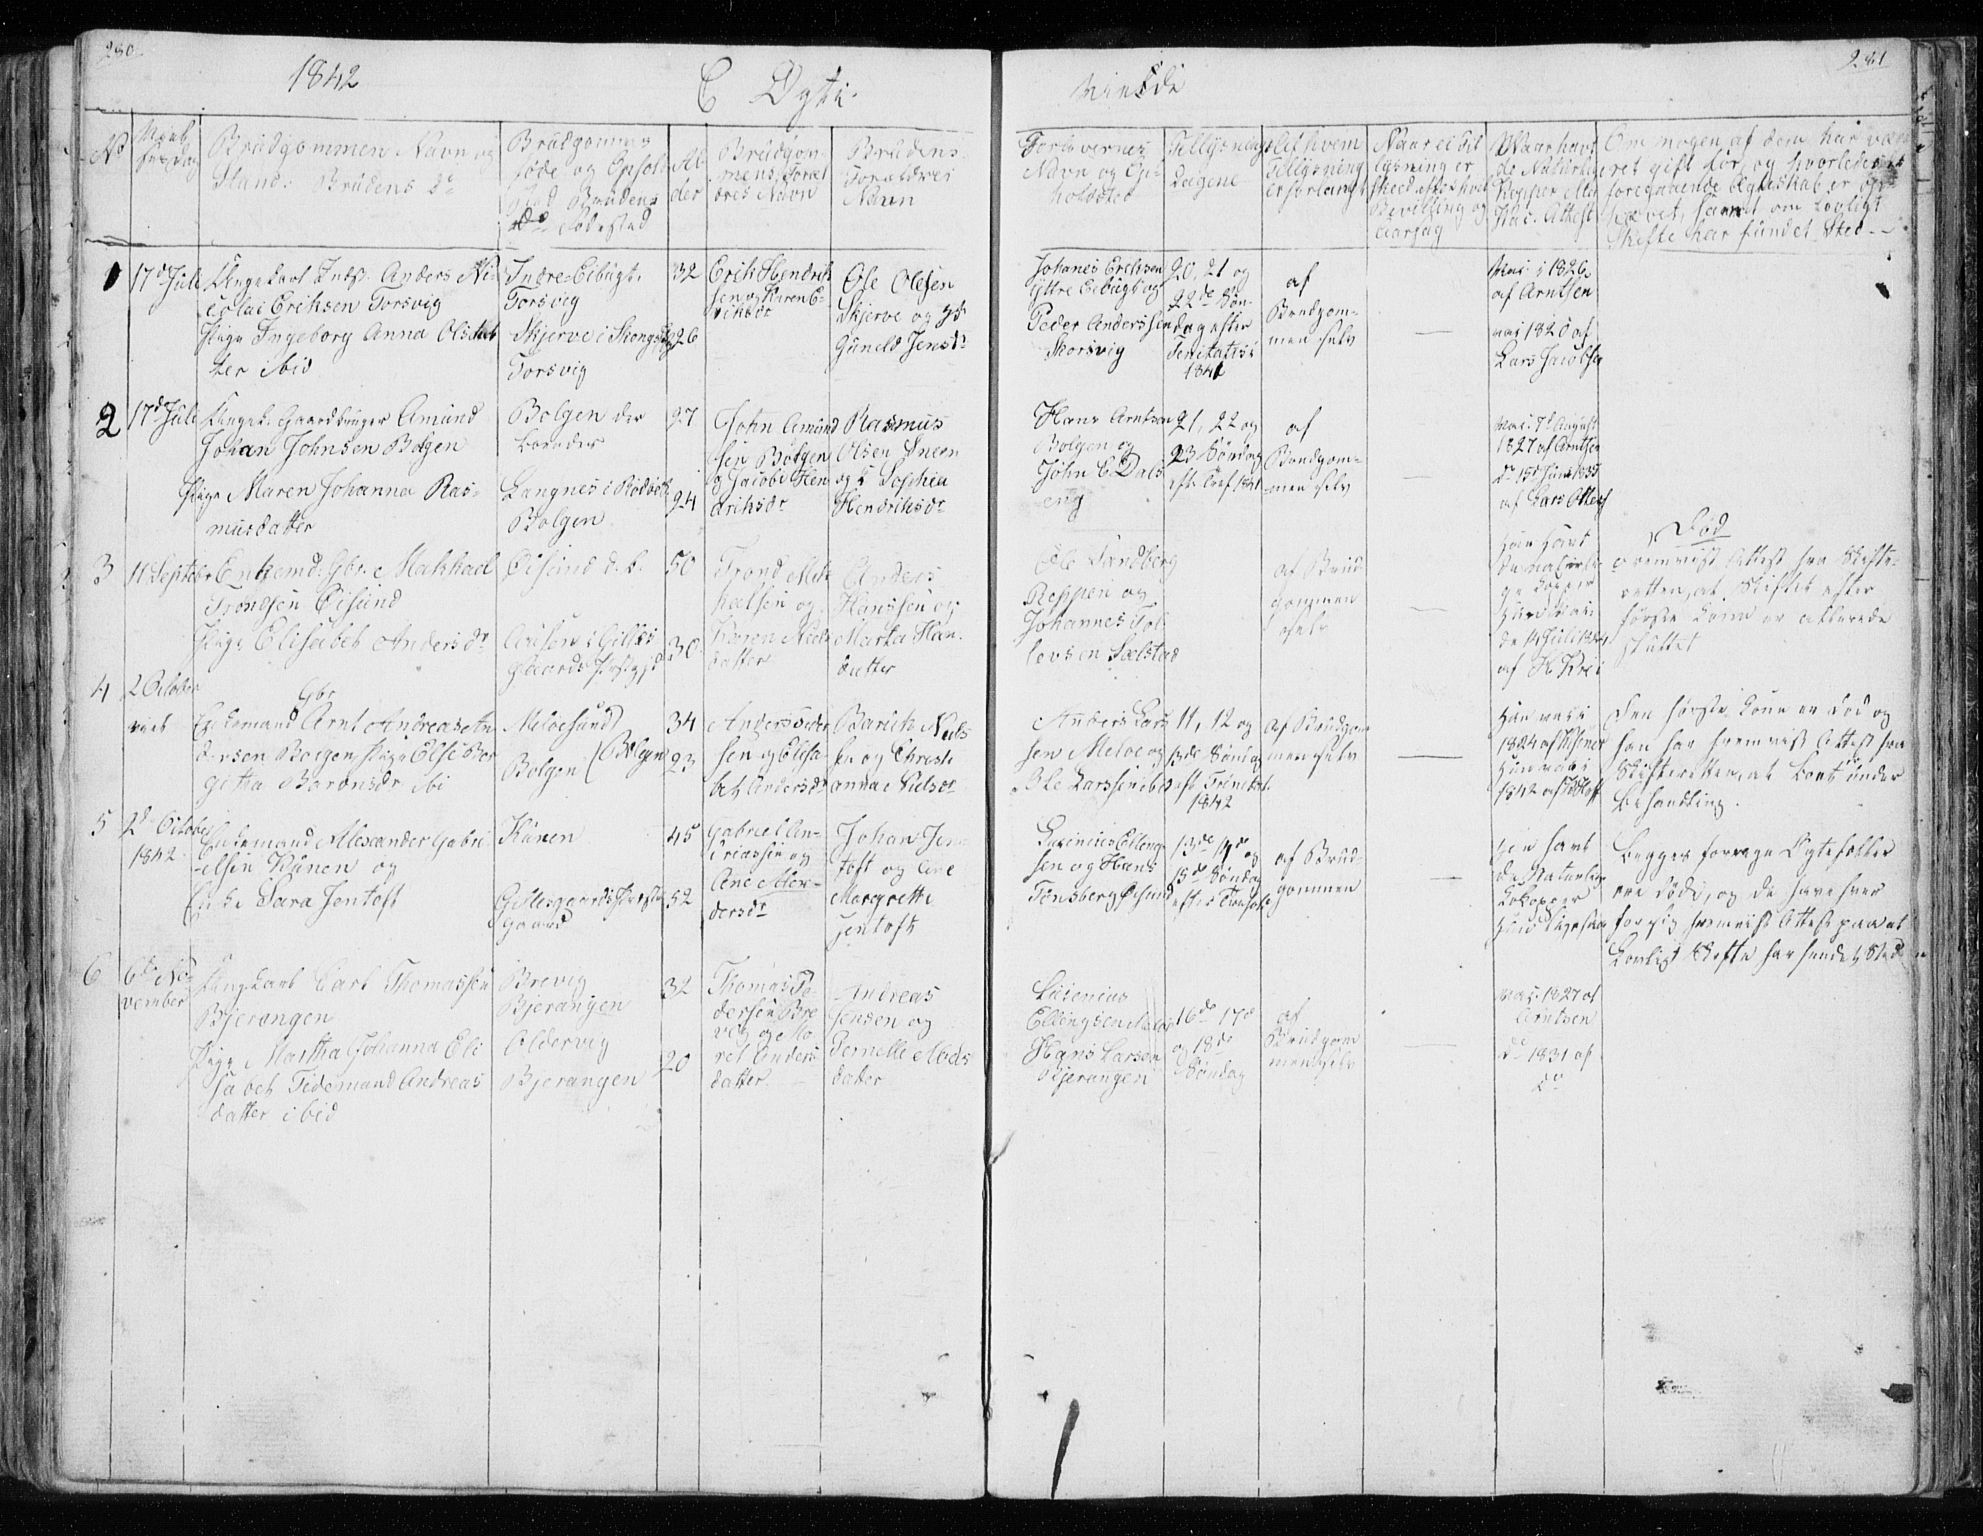 280
281
1842
C Ægte
viede
No
Brudgommens Navn og
Stand. Brudens do
Brudgommens
føde og Opholds
sted Brudens
do Fødested
Al
der
Brudgom-
mens Foræl
dres Navn
Brudens
Forældres
Navn
Forlovernes
Navn og Op-
holdsted
Tillysnings
Dagene
Af hvem
Tillysning
er forlangt
Naar ei Til
lysning er
skeed, efter hvad
Bevilling og
aarsag
Naar havt
de Naturlige
Kopper eller
Vac. Attest
Om nogen af dem har væ
ret gift før, og hvorledes
foregaaende Ægteskab er op
hævet, samt om lovligt
Skifte har fundet Sted
1
17de Juli
Ungekarl Inds. Anders Ni-
colai Eriksen Torsvig
Pige Ingeborg Anna Olsdat
ter ibid
Indre Eibugt
Torsvig
Skjerve i Skongs
Torsvig
32
26
Erik Hendrik
sen og Karen E-
riksdr
Ole Olesen
Skjerve og
Guneld Jensdr
Johanes Eriksen
Ytre Eibugt og
Peder Anderssen
Skorsvig
20, 21 og
22de Søn-
dag efter
Trinitatis
1841
af
Brudgom-
men selv
Vac. i 1826
af Arntsen
vac. 1820 af
Lars Jacobsen
2
17de Juli
Ungk. Gaardbruger Amund
Johan Johnsen Bolgen
Pige Maren Johanna Ras-
musdatter
Bolgen der
boender
Langnes i Rødø
Bolgen
27
24
John Amund
sen Bolgen
og Jacobe Hen
driksdr
Rasmus
Olsen Sneen
og Sophia
Hendriksdr
Hans Arntsen
Bolgen og
John E. Dals
eng
21, 22 og
23 Søndag
eft. Tref 1841
af
Brudgom-
men selv
vac. 7de August
1827 af Arntsen
do 15de Juni 1835
af Lars Ottes
3
11 Septbr
Enkemd. Gbr. Mikkael
Trondsen Øisund
Pige Elisabet Andersdr
Øisund d. b.
i Gilles
gaards Præstegjd
50
30
Trond Mik
kelsen og
Karen Niels
datter
Anders
Hanssen og
Marta Han
datter
Ole Sandberg
Reppen og
Johannes Tol
levsen Selstad
af Brud
gommen
selv
Han havt
de naturli
ge Kopper
Hun vac.
de 14 Juli
af H. Krei
Død
fremvist Attest fra Skifte-
retten, at Skiftet efter
første Kone er allerede
sluttet
4
2 October
viet
Gbr
Enkemand Arnt Andreas An
dersen Bolgen Pige Elsi Bor
getha Baronsdr ibi
Meløesund
Bolgen (Bolgen
34
23
Anders Peder
sen og Elisa
bet Andersdr
Baron Niels
sen og Christi
anna Nielsdr
Anders Lars
sen Meløe og
Ole Larssen ibd
11, 12 og
13de Søndag
eft Trinitat.
1842
af Brudgom
men selv
Han vac i
1824 af
Hun vac i
1842 af
Den første Kone er død og
han har fremvist Attest fra
Skifteretten, at boet under
behandling.
5
2de October
1842
Enkemand Alexander Gabri
elsen Kunen og
Enke Sara Jentoft
Kunen
Gillesgaards Præste
gaard
45
52
Gabriel An-
driassen og
Ane Alex-
dersdr
Johan Jen
toft og Ane
Margrethe
Jentoft
Lusinius Elling
sen og Hans
Tønsberg Øisund
13de 14de og
15de Søndag
efter Trefold
af Brud-
gommen
Han havt
de Naturlige
Kopper
Hun ligesaa
Begges forrige Ægtefæller
ere døde, og de have hver
for sig fremvist Attest paa at
Lovligt Skifte har fundet Sted
6
6te No-
vember
Ungkarl Carl Thomassen
Bjerangen
Pige Martha Johanna Eli
sabet Tidemand Andreas
datter ibid
Brevig
Bjerangen
Aldervig
Bjerangen
32
20
Thomas Pe-
dersen Bre
vig og Ma
ret Anders
datter
Andreas
Jensen og
Pernelle Mads
datter
Lusenius
Ellingsen Meløe
Hans Larsen
Bjerangen
16de 17de
og 18de
Søndag
af
Brudgom
men selv
vac. 1827 af
Arntsen
do 1831 af
do